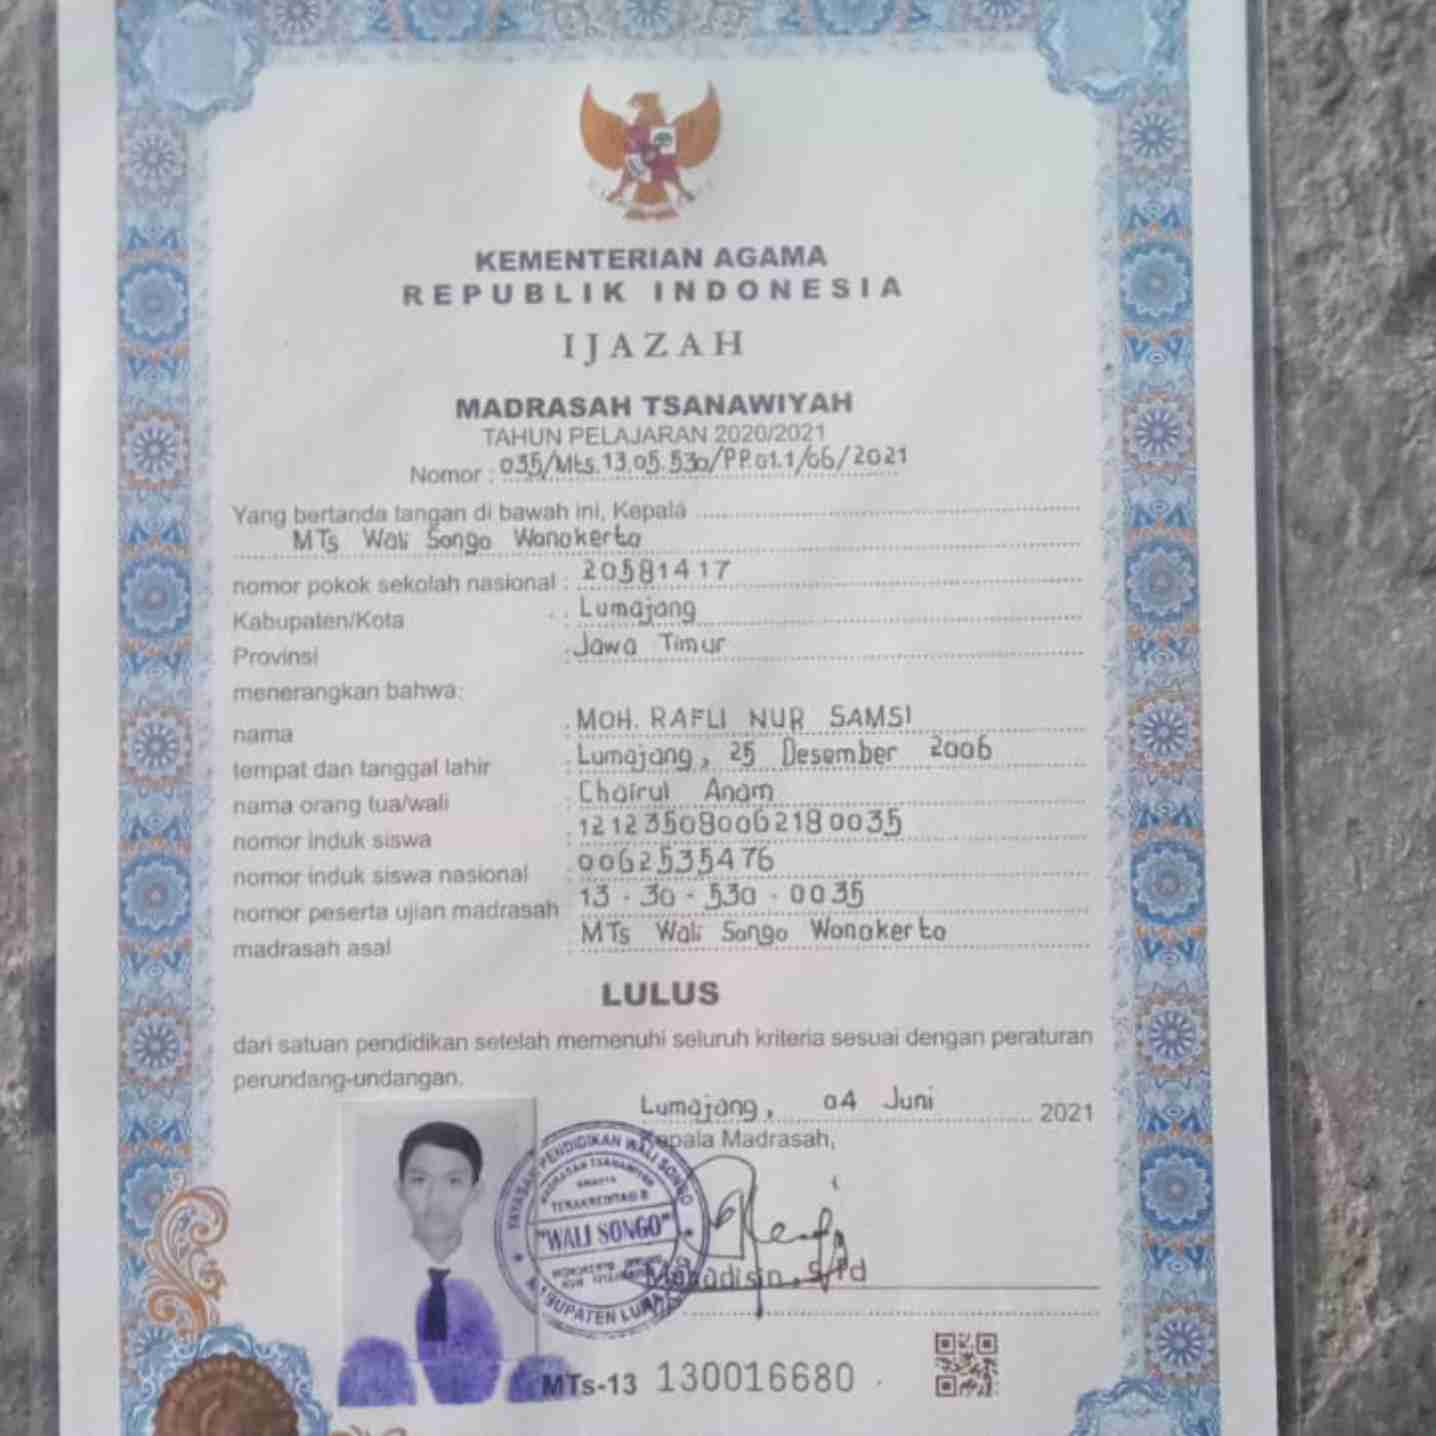 KEMENTERIAN AGAMA
REPUBLIK INDONESIA
IJAZAH
MADRASAH TSANAWIYAH
TAHUN PELAJARAN 2020/2021
Nomor : 035/Mts.13.05.530/PP.01.1/06/2021
Yang bertanda tangan di bawah ini, Kepala
MTs Wali Songo Wonokerto
nomor pokok sekolah nasional : 20581417
Kabupaten/Kota : Lumajang
Provinsi : Jawa Timur
menerangkan bahwa:
nama : MOH. RAFLI NUR SAMSI
tempat dan tanggal lahir : Lumajang, 25 Desember 2006
nama orang tua/wali : Chairul Anam
nomor induk siswa : 121235080062180035
nomor induk siswa nasional : 0062535476
nomor peserta ujian madrasah : 13-30-530-0035
madrasah asal : MTs Wali Songo Wonokerto
LULUS
dari satuan pendidikan setelah memenuhi seluruh kriteria sesuai dengan peraturan
perundang-undangan.
Lumajang, 04 Juni 2021
Kepala Madrasah,
YAYASAN PENDIDIKAN WALI SONGO
MADRASAH TSANAWIYAH
TERAKREDITASI B
"WALI SONGO"
S.Pd
MTs-13 130016680